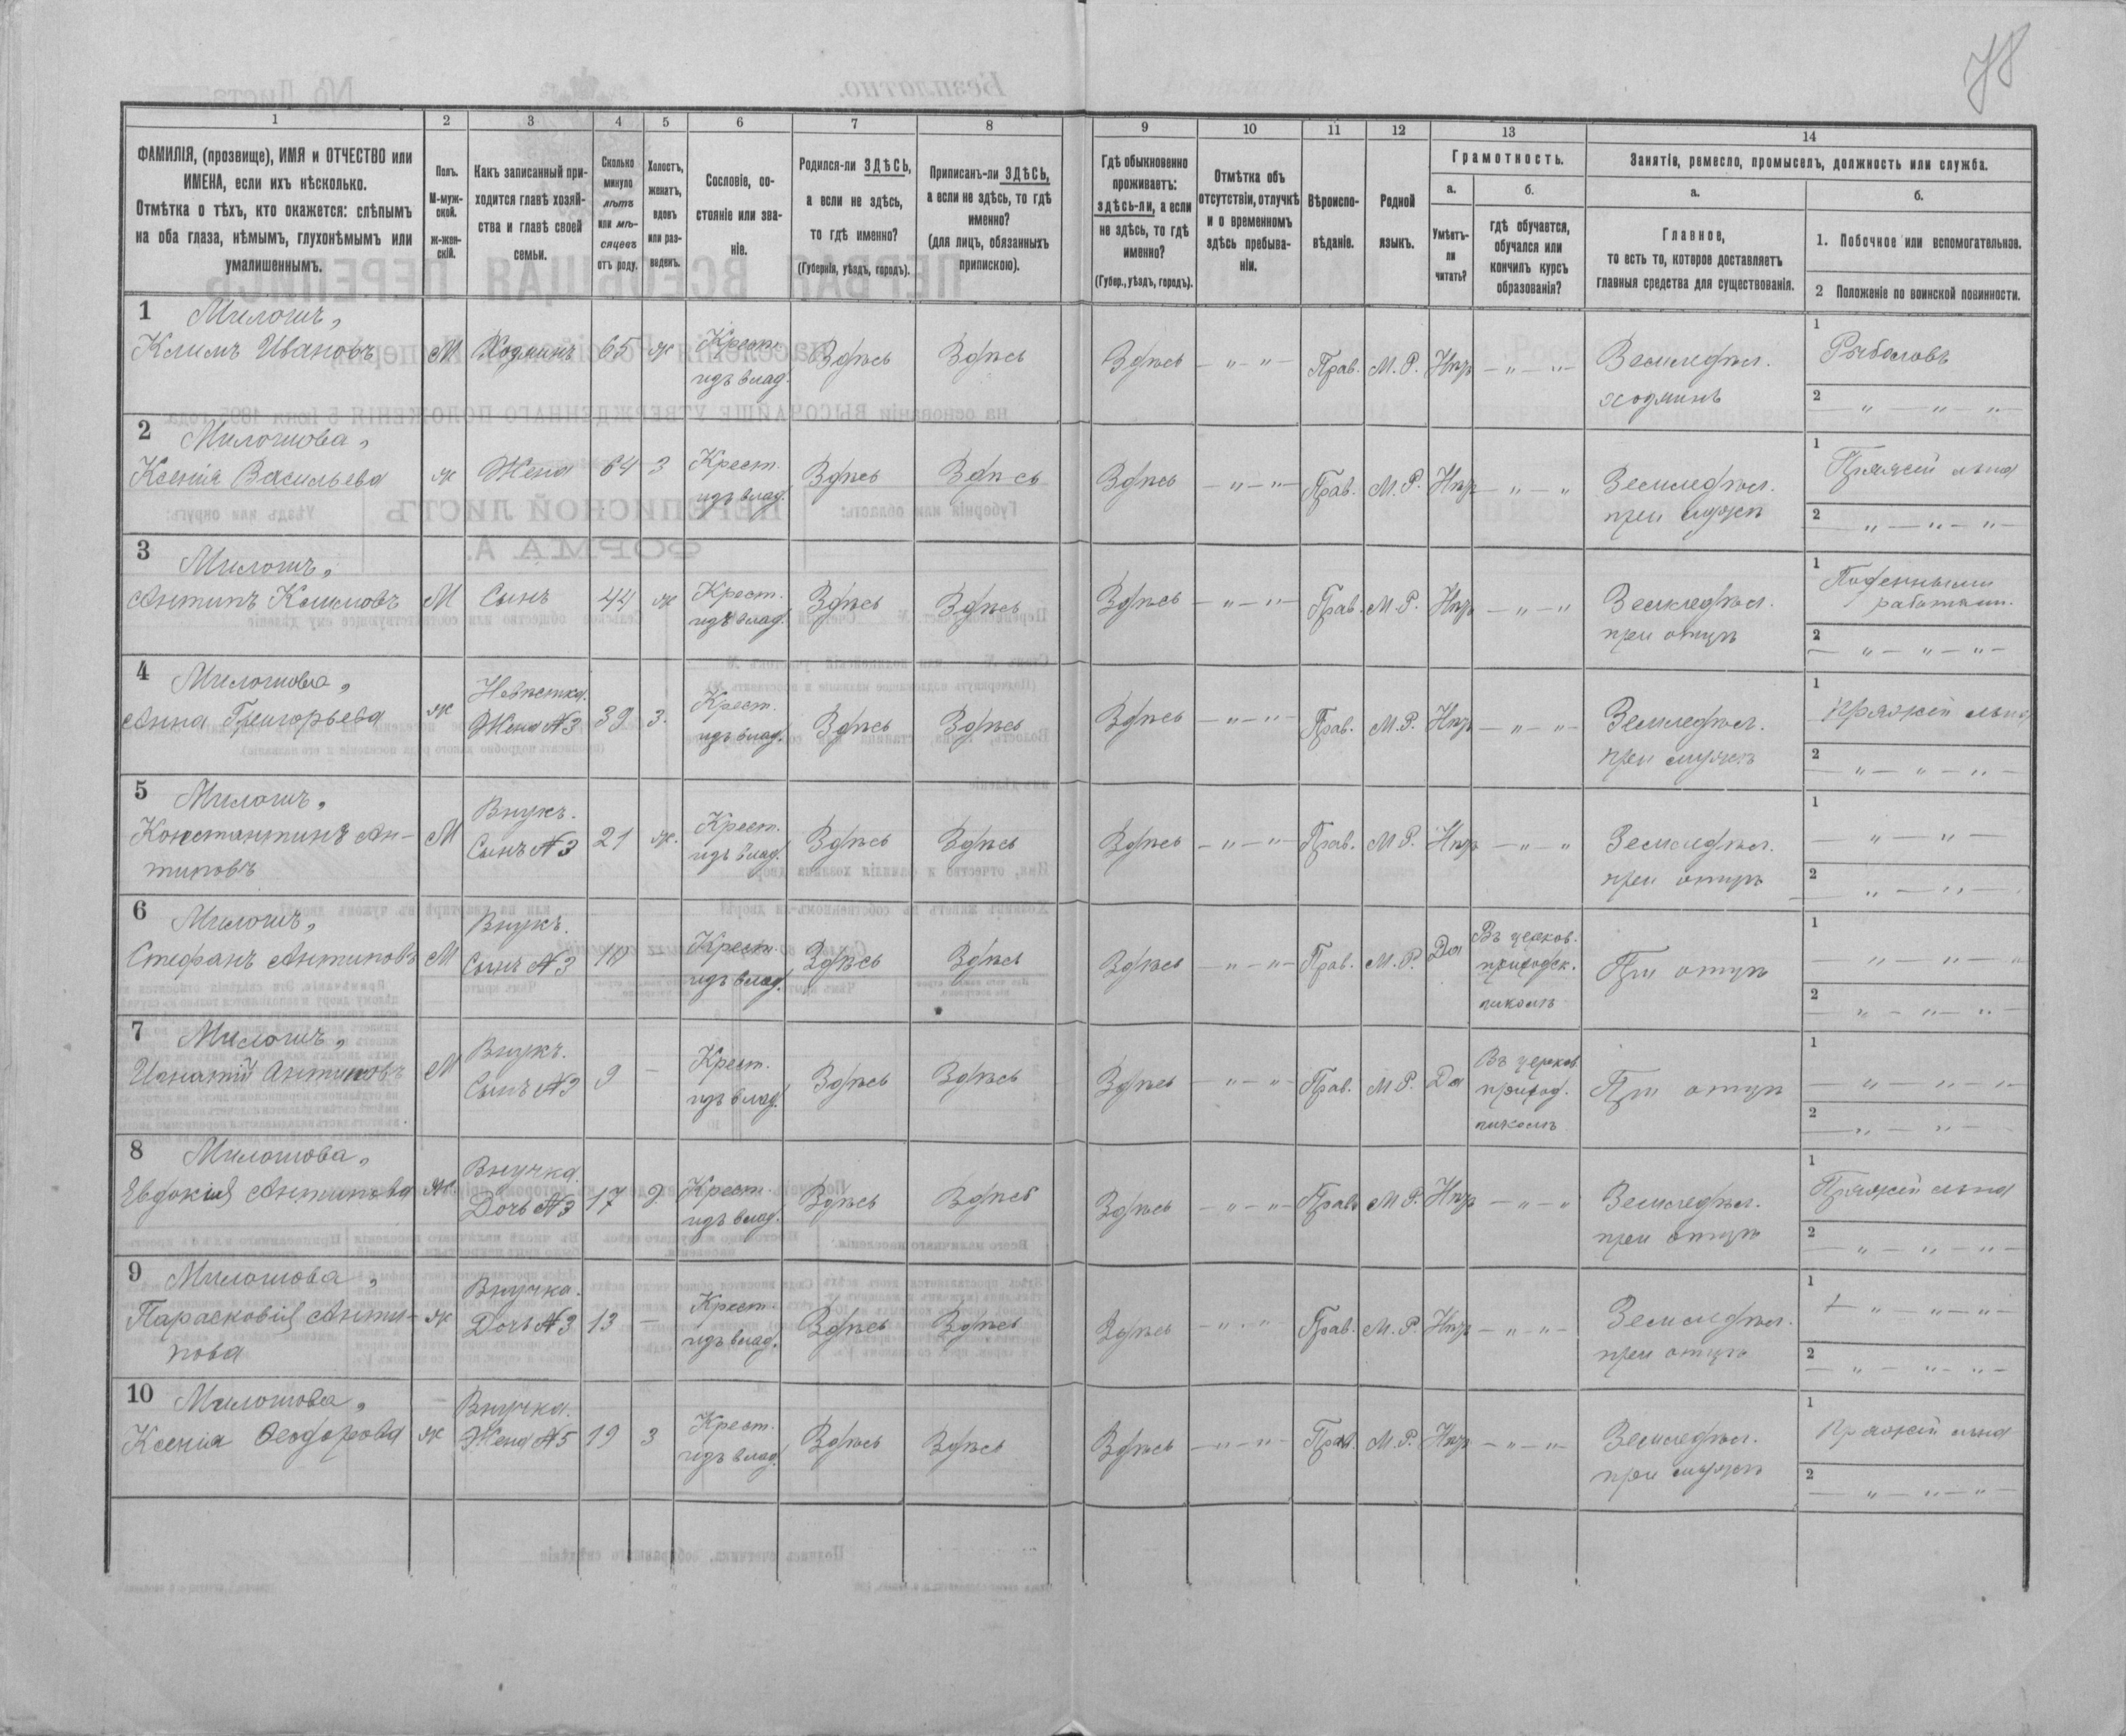 78
1 2 3 4 5 6 7 8 9 10 11 12 13 14
ФАМИЛІЯ, (прозвище), ИМЯ и ОТЧЕСТВО или
ИМЕНА, если ихъ нѣсколько.
Отмѣтка о тѣхъ, кто окажется: слѣпымъ
на оба глаза, нѣмымъ, глухонѣмымъ или
умалишеннымъ.
Полъ.
М-муж-
ской.
ж-жен-
скій.
Какъ записанный при-
ходится главѣ хозяй-
ства и главѣ своей
семьи.
Сколько
минуло
лѣтъ
или мѣ-
сяцевъ
отъ роду.
Холостъ,
женатъ,
вдовъ
или раз-
веденъ.
Сословіе, со-
стояніе или зва-
ніе.
Родился-ли ЗДѢСЬ,
а если не здѣсь,
то гдѣ именно?
(Губернія, уѣздъ, городъ).
Приписанъ-ли ЗДѢСЬ,
а если не здѣсь, то гдѣ
именно?
(для лицъ, обязанныхъ
припискою).
Гдѣ обыкновенно
проживаетъ:
здѣсь-ли, а если
не здѣсь, то гдѣ
именно?
(Губер., уѣздъ, городъ).
Отмѣтка объ
отсутствіи, отлучкѣ
и о временномъ
здѣсь пребыва-
ніи.
Вѣроиспо-
вѣданіе.
Родной
языкъ.
Грамотность.
а.
Умѣетъ-
ли
читать?
б.
гдѣ обучается,
обучался или
кончилъ курсъ
образованія?
Занятіе, ремесло, промыселъ, должность или служба.
а.
Главное,
то есть то, которое доставляетъ
главныя средства для существованія.
б.
1. Побочное или вспомогательное.
2 Положеніе по воинской повинности.
1 Милошъ,
Климъ Ивановъ
М
Хозяинъ
65
ж
Крест.
изъ влад.
Здѣсь
Здѣсь
Здѣсь
— „ — „ —
Прав.
М.Р.
Нѣтъ
— „ — „ —
Земледѣл.
хозяинъ
1 Рыболовъ
2 — „ — „ — „ —
2 Милошова,
Ксенія Васильева
ж
Жена
64
З
Крест.
изъ влад.
Здѣсь
Здѣсь
Здѣсь
— „ — „ —
Прав.
М.Р.
Нѣтъ
— „ — „
Земледѣл.
при мужѣ
1 Пряжей льна
2 — „ — „ — „ —
3 Милошъ,
Антипъ Климовъ
М
Сынъ
44
ж
Крест.
изъ влад.
Здѣсь
Здѣсь
Здѣсь
— „ — „ —
Прав.
М.Р.
Нѣтъ
— „ — „
Земледѣл.
при отцѣ
1 Поденными
работами.
2 — „ — „ — „ —
4 Милошова,
Анна Григорьева
ж
Невѣстка.
Жена №3
39
З.
Крест.
изъ влад.
Здѣсь
Здѣсь
Здѣсь
— „ — „ —
Прав.
М.Р.
Нѣтъ
— „ — „ —
Земледѣл.
при мужѣ
1 Пряжей льна
2 — „ — „ — „ —
5 Милошъ,
Константинъ Ан-
типовъ
М
Внукъ.
Сынъ №3
21
ж.
Крест.
изъ влад.
Здѣсь
Здѣсь
Здѣсь
— „ — „ —
Прав.
М.Р.
Нѣтъ
— „ — „
Земледѣл.
при отцѣ
1 — „ — „ —
2 — „ — „ —
6 Милошъ,
Стефанъ Антиповъ
М
Внукъ.
Сынъ №3
Крест.
изъ влад.
Здѣсь
Здѣсь
Здѣсь
— „ — „ —
Прав.
М.Р.
Да
Въ церков.
приходск.
школѣ
При отцѣ
1 — „ — „ — „
2 — „ — „ — „ —
7 Милошъ,
Игнатій Антиповъ
М
Внукъ.
Сынъ №3
9
—
Крест.
изъ влад.
Здѣсь
Здѣсь
Здѣсь
— „ — „
Прав.
М.Р.
Да
Въ церков.
приход.
школѣ
При отцѣ
1 — „ — „ — „ —
2 — „ — „ —
8 Милошова,
Евдокія Антипова
ж
Внучка.
Дочь №3
17
Крест.
изъ влад.
Здѣсь
Здѣсь
Здѣсь
— „ — „ —
Прав.
М.Р.
Нѣтъ
— „ — „
Земледѣл.
при отцѣ
1 Пряжей льна
2 — „ — „ — „ —
9 Милошова,
Парасковія Анти-
пова
ж
Внучка.
Дочь №3
13
—
Крест.
изъ влад.
Здѣсь
Здѣсь
Здѣсь
— „ — „
Прав.
М.Р.
Нѣтъ
— „ — „ —
Земледѣл.
при отцѣ
1 — „ — „ — „ —
2 — „ — „ — „ —
10 Милошова,
Ксенія Ѳеодорова
ж
Внучка.
Жена №5
19
З
Крест.
изъ влад.
Здѣсь
Здѣсь
Здѣсь
— „ — „ —
Прав.
М.Р.
Нѣтъ
— „ — „ —
Земледѣл.
при мужѣ
1 Пряжей льна
2 — „ — „ — „ —